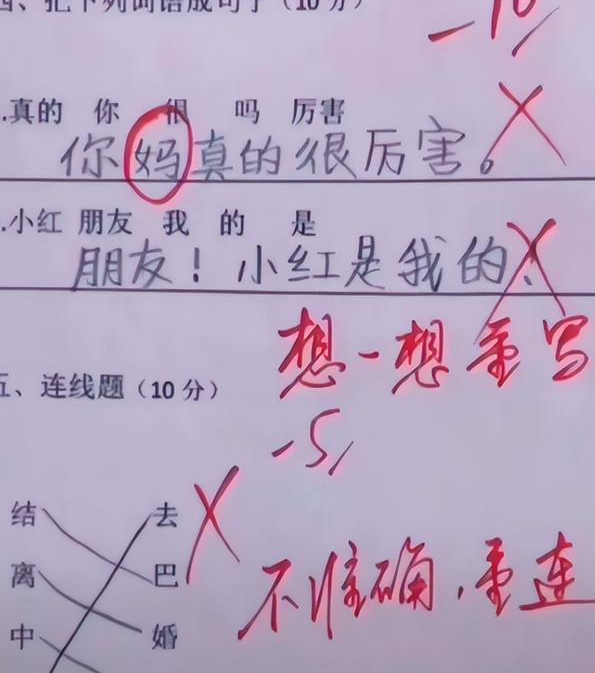 四、把下列词语成句子（10分）
-10
.真的 你 很 吗 厉害
你妈真的很厉害。
.小红 朋友 我 的 是
朋友！小红是我的.
想一想重写
五、连线题（10分）
-5
结 去
离 巴
不准确，重连
中 婚